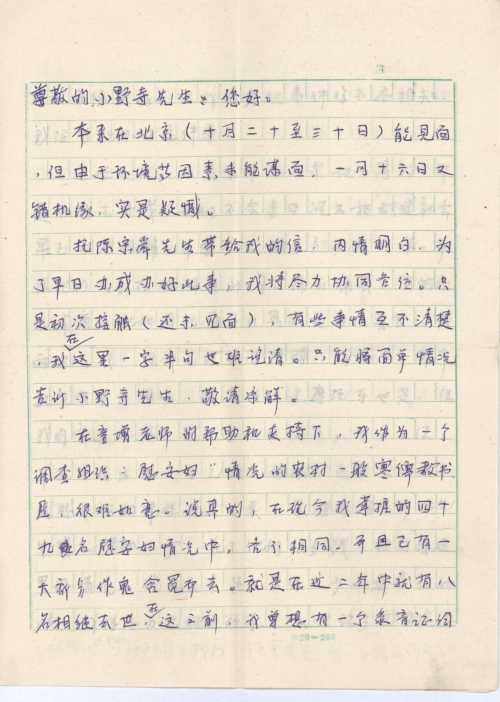 尊敬的小野寺先生：您好。
本来在北京（十月二十至三十日）能见面
，但由于环境等因素未能谋面，一月十六日又
错机缘，实是疑憾。
托陈宗舜先生带给我的信，内情明白，为
了早日办成办好此事，我将尽力协同各位。只
是初次接触（还未见面），有些事情互不清楚
，我在这里一字半句也难说清。只能将简单情况
告诉小野寺先生，敬请谅解。
在 老师的帮助和支持下，我作为一个
调查组织"慰安妇"情况的农村一般寒儒教书
匠，很难如意。说真的，在迄今我掌握的四十
九名慰安妇情况中，各不相同。并且已有一
大部分作鬼含冤而去。就是在近二年中就有八
名相继去世，在这之前，我曾想有一个录音证词
20—20